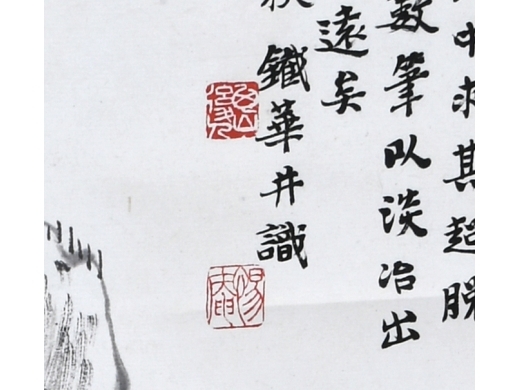 中求其超脫
數筆以淡冶出
遠矣
鐵華井識